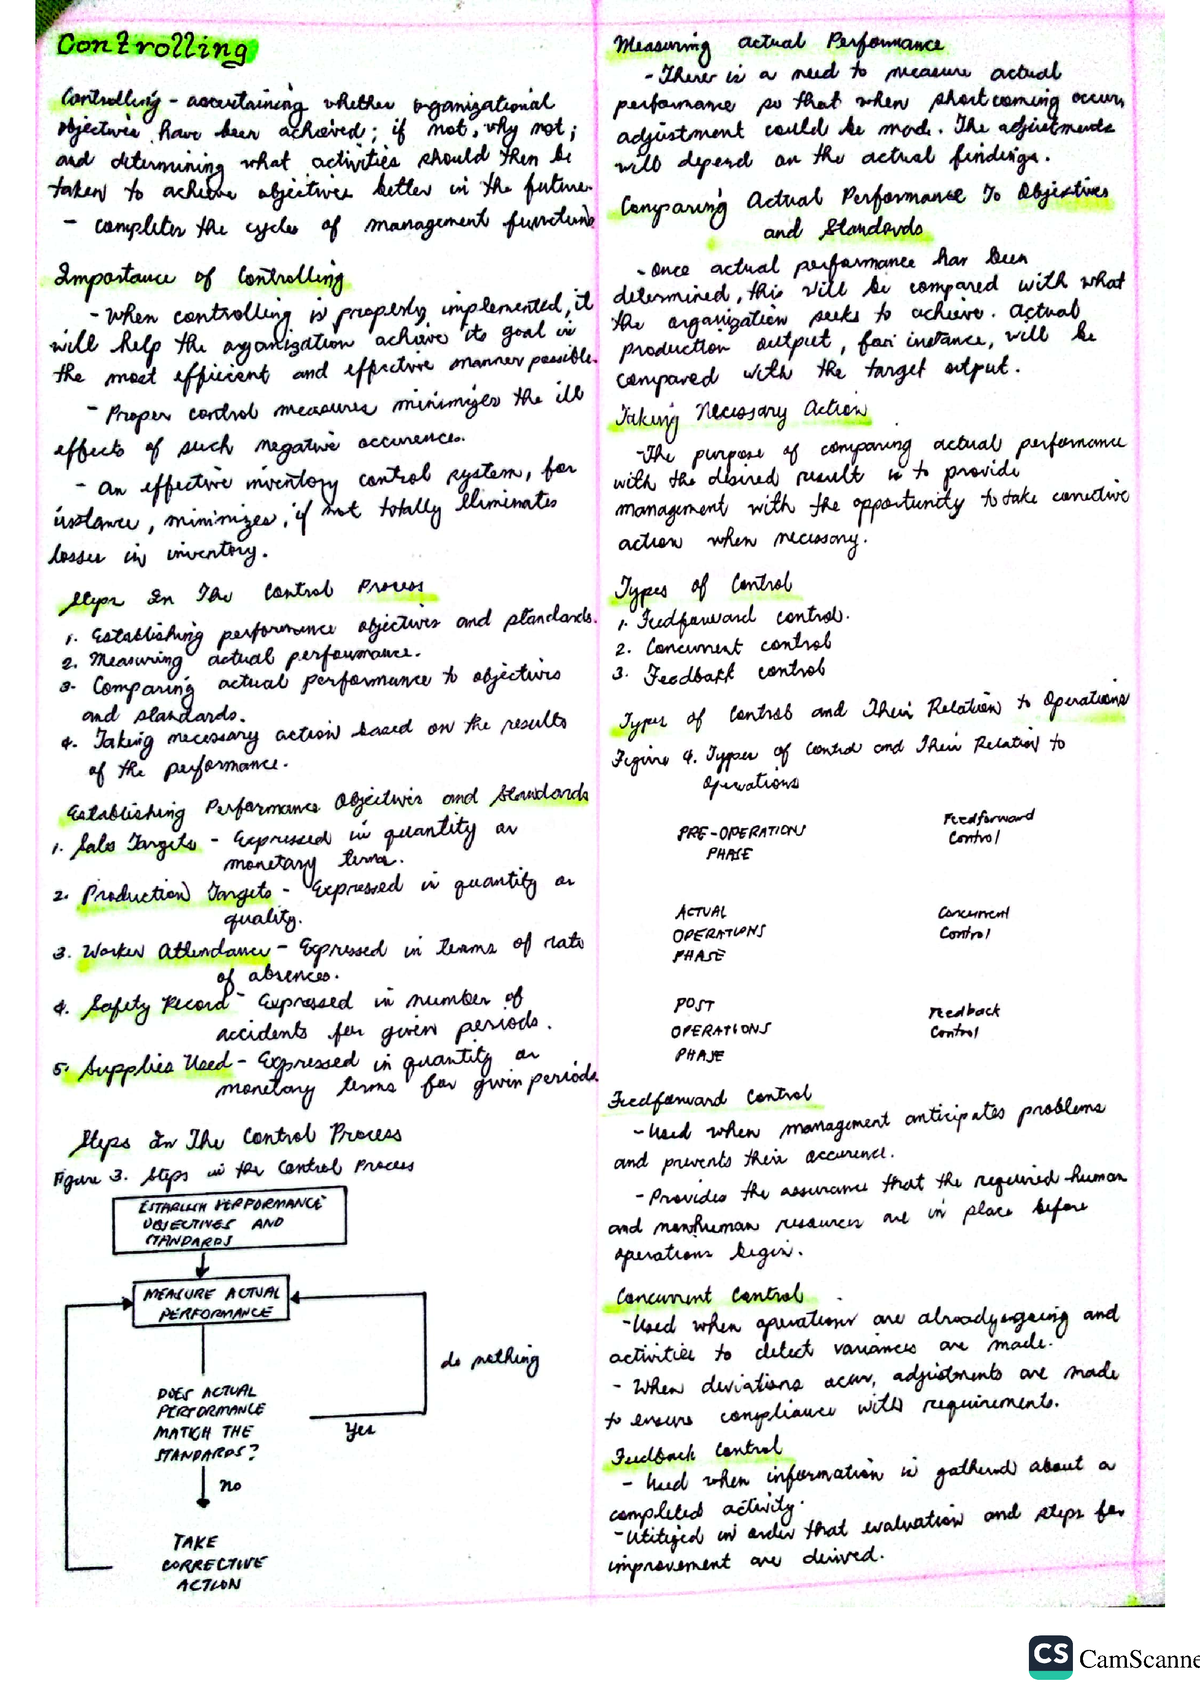 Controlling
Controlling - ascertaining whether organizational
objectives have been achieved; if not, why not;
and determining what activities should then be
taken to achieve objectives better in the future.
- completes the cycles of management functions
Importance of Controlling
- When controlling is properly implemented, it
will help the organization achieve its goal in
the most efficient and effective manner possible.
- Proper control measures minimizes the ill
effects of such negative occurence.
- An effective inventory control system, for
instance, minimizes, if not totally eliminates
losses in inventory.
Steps In The Control Process
1. Establishing performance objectives and standards.
2. Measuring actual performance.
3. Comparing actual performance to objectives
and standards.
4. Taking necessary action based on the results
of the performance.
Establishing Performance Objectives and Standards
1. Sales Targets - Expressed in quantity or
monetary terms.
2. Production Targets - Expressed in quantity or
quality.
3. Worker Attendance - Expressed in terms of rate
of absences.
4. Safety Record - Expressed in number of
accidents for given periods.
5. Supplies Used - Expressed in quantity or
monetary terms for given periods.
Steps In The Control Process
Figure 3. Steps in the Control Process
ESTABLISH PERFORMANCE
OBJECTIVES AND
STANDARDS
MEASURE ACTUAL
PERFORMANCE
do nothing
DOES ACTUAL
PERFORMANCE
MATCH THE
STANDARDS?
Yes
no
TAKE
CORRECTIVE
ACTION
Measuring actual Performance
- There is a need to measure actual
performance so that when shortcoming occurs,
adjustment could be made. The adjustments
will depend on the actual findings.
Comparing Actual Performance To Objectives
and Standards
- Once actual performance has been
determined, this will be compared with what
the organization seeks to achieve. Actual
production output, for instance, will be
compared with the target output.
Taking Necessary Action
- The purpose of comparing actual performance
with the desired result is to provide
management with the opportunity to take corrective
action when necessary.
Types of Control
1. Feedforward control.
2. Concurrent control
3. Feedback control
Types of Control and Their Relation to Operations
Figure 4. Types of Control and Their Relation to
Operations
PRE-OPERATION
PHASE
Feedforward
Control
ACTUAL
OPERATIONS
PHASE
Concurrent
Control
POST
OPERATIONS
PHASE
Feedback
Control
Feedforward Control
- Used when management anticipates problems
and prevents their occurence.
- Provides the assurance that the required human
and nonhuman resources are in place before
operations begin.
Concurrent Control
- Used when operations are already ongoing and
activities to detect variances are made.
- When deviations occur, adjustments are made
to ensure compliance with requirements.
Feedback Control
- Used when information is gathered about a
completed activity.
- Utitized in order that evaluation and steps for
improvement are derived.
CS CamScanne